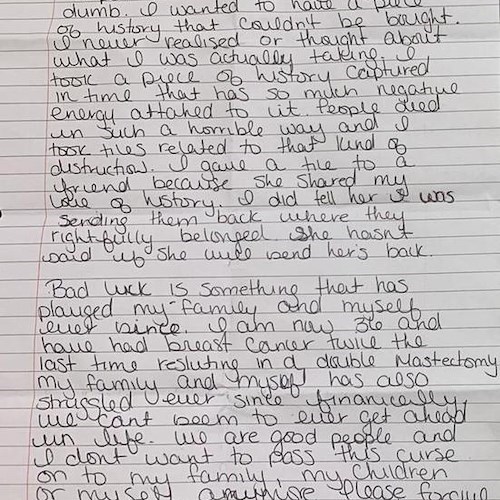 dumb. I wanted to have a piece
of history that couldn't be bought.
I never realised or thought about
what I was actually taking. I
took a piece of history captured
in time that has so much negative
energy attahed to it. People died
in such a horrible way and I
took tiles related to that kind of
distruction. I gave a tile to a
friend because she shared my
love of history. I did tell her I was
sending them back where they
rightfully belonged. She hasn't
said if she will send her's back.
Bad luck is something that has
plauged my family and myself
ever since. I am now 36 and
have had breast cancer twice the
last time resluting in a double Mastectomy
my family and myself has also
struggled ever since financially,
we cant seem to ever get ahead
in life. We are good people and
I dont want to pass this curse
on to my family, my children
or myself anymore. Please forgive